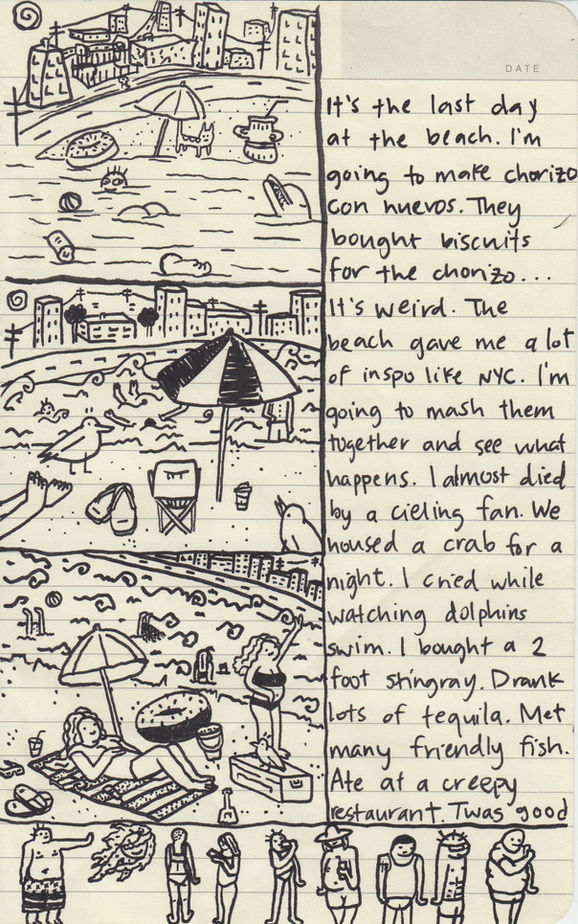 DATE
It's the last day
at the beach. I'm
going to make chorizo
con huevos. They
bought biscuits
for the chorizo...
It's weird. The
beach gave me a lot
of inspo like NYC. I'm
going to mash them
together and see what
happens. I almost died
by a cieling fan. We
housed a crab for a
night. I cried while
watching dolphins
swim. I bought a 2
foot stingray. Drank
lots of tequila. Met
many friendly fish.
Ate at a creepy
restaurant. Twas good